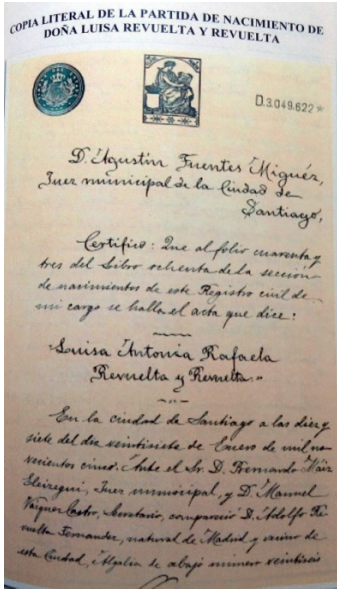 COPIA LITERAL DE LA PARTIDA DE NACIMIENTO DE
DOÑA LUISA REVUELTA Y REVUELTA
D.3.049.622*
D. Agustin Fuentes Miguéz,
Juez municipal de la Ciudad de
Santiago,
Certifico: Que al folio cuarenta y
tres del Libro ochenta de la sección
de nacimientos de este Registro civil de
mi cargo se halla el acta que dice:
"Luisa Antonia Rafaela
Revuelta y Revuelta."
En la ciudad de Santiago a las diez y
siete del dia veintisiete de Enero de mil no-
vecientos cinco. Ante el Sr. D. Fernando
Eleizegui, Juez municipal, y D. Manuel
Vazquez Castro, Secretario, compareció D. Adolfo Re-
vuelta Fernandez, natural de Madrid y vecino de
esta Ciudad, Algalia de abajo número veintiseis